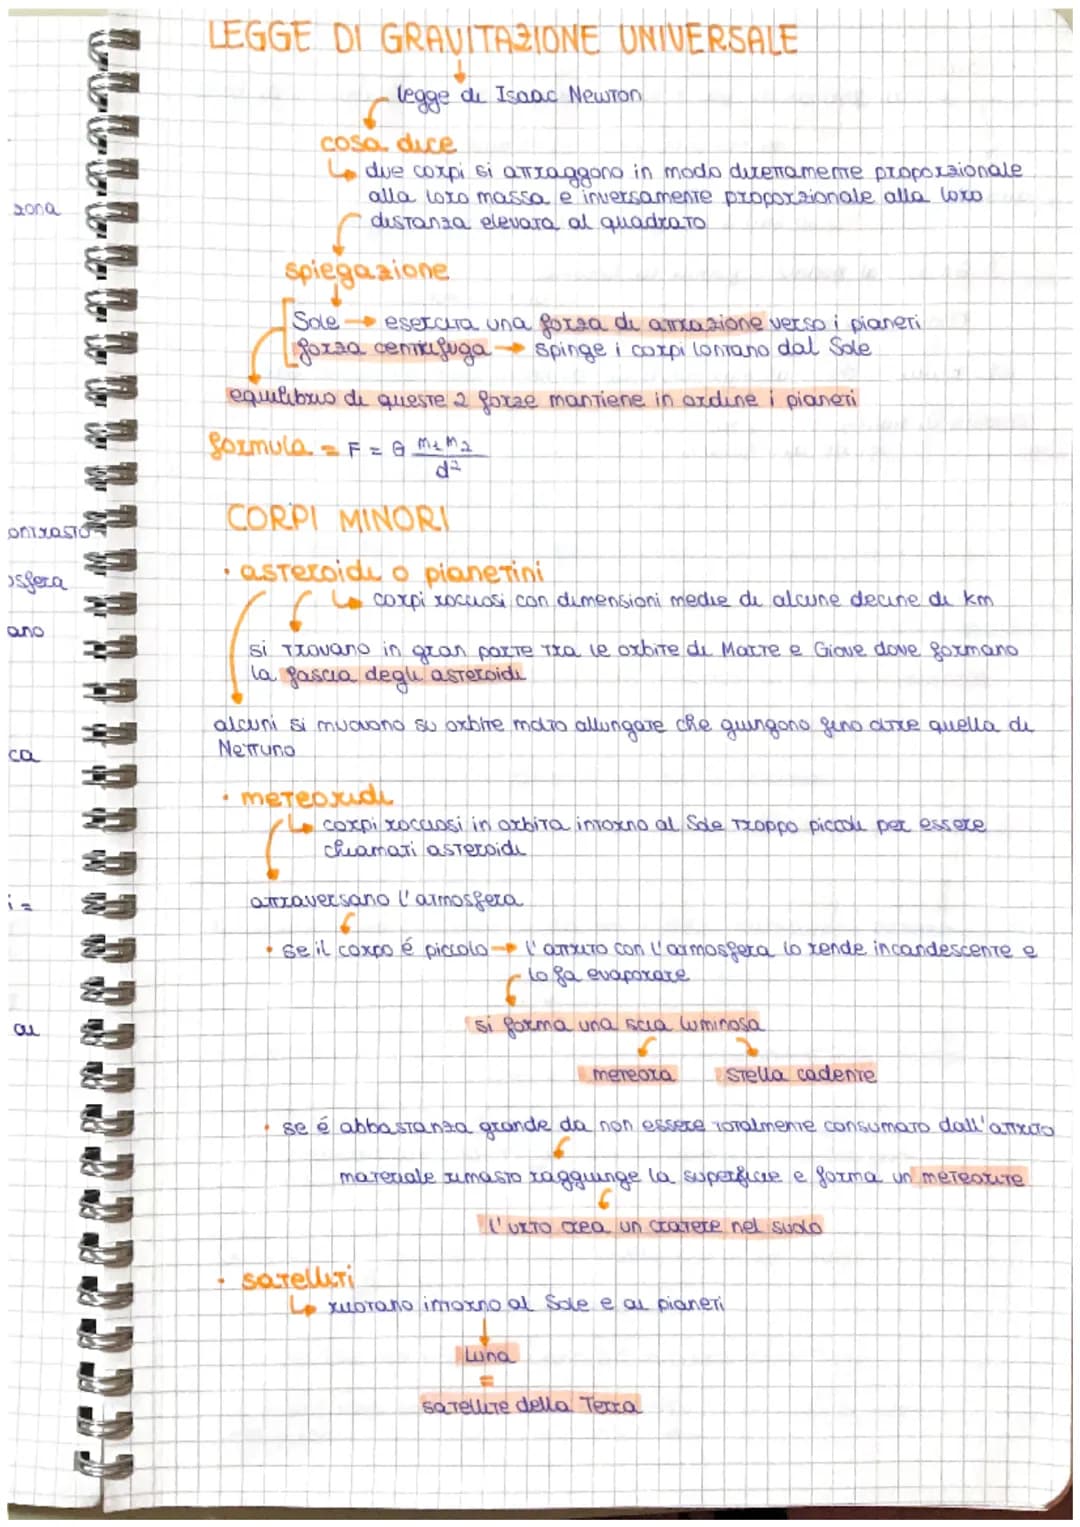 LEGGE DI GRAVITAZIONE UNIVERSALE
legge di Isaac Newton
cosa dice
due corpi si attraggono in modo direttamente proporzionale
alla loro massa e inversamente proporzionale alla loro
distanza elevata al quadrato
zona
spiegazione
Sole → esercita una forza di attrazione verso i pianeti
forza centrifuga → spinge i corpi lontano dal Sole
equilibrio di queste 2 forze mantiene in ordine i pianeti
formula = F = G m₁m₂
d²
CORPI MINORI
ontrasto
• asteroidi o pianetini
osfera
corpi rocciosi con dimensioni medie di alcune decine di km
ano
si trovano in gran parte tra le orbite di Marte e Giove dove formano
la fascia degli asteroidi
alcuni si muovono su orbite molto allungate che giungono fino oltre quella di
Nettuno
ca
• meteoridi
corpi rocciosi in orbita intorno al Sole troppo piccoli per essere
chiamati asteroidi
attraversano l'atmosfera
i =
• se il corpo é piccolo → l'attrito con l'atmosfera lo rende incandescente e
lo fa evaporare
si forma una scia luminosa
ai
meteora stella cadente
• se é abbastanza grande da non essere totalmente consumato dall'attrito
materiale rimasto raggiunge la superficie e forma un meteorite
l'urto crea un cratere nel suolo
• satelliti
ruotano intorno al Sole e ai pianeti
Luna
=
satellite della Terra